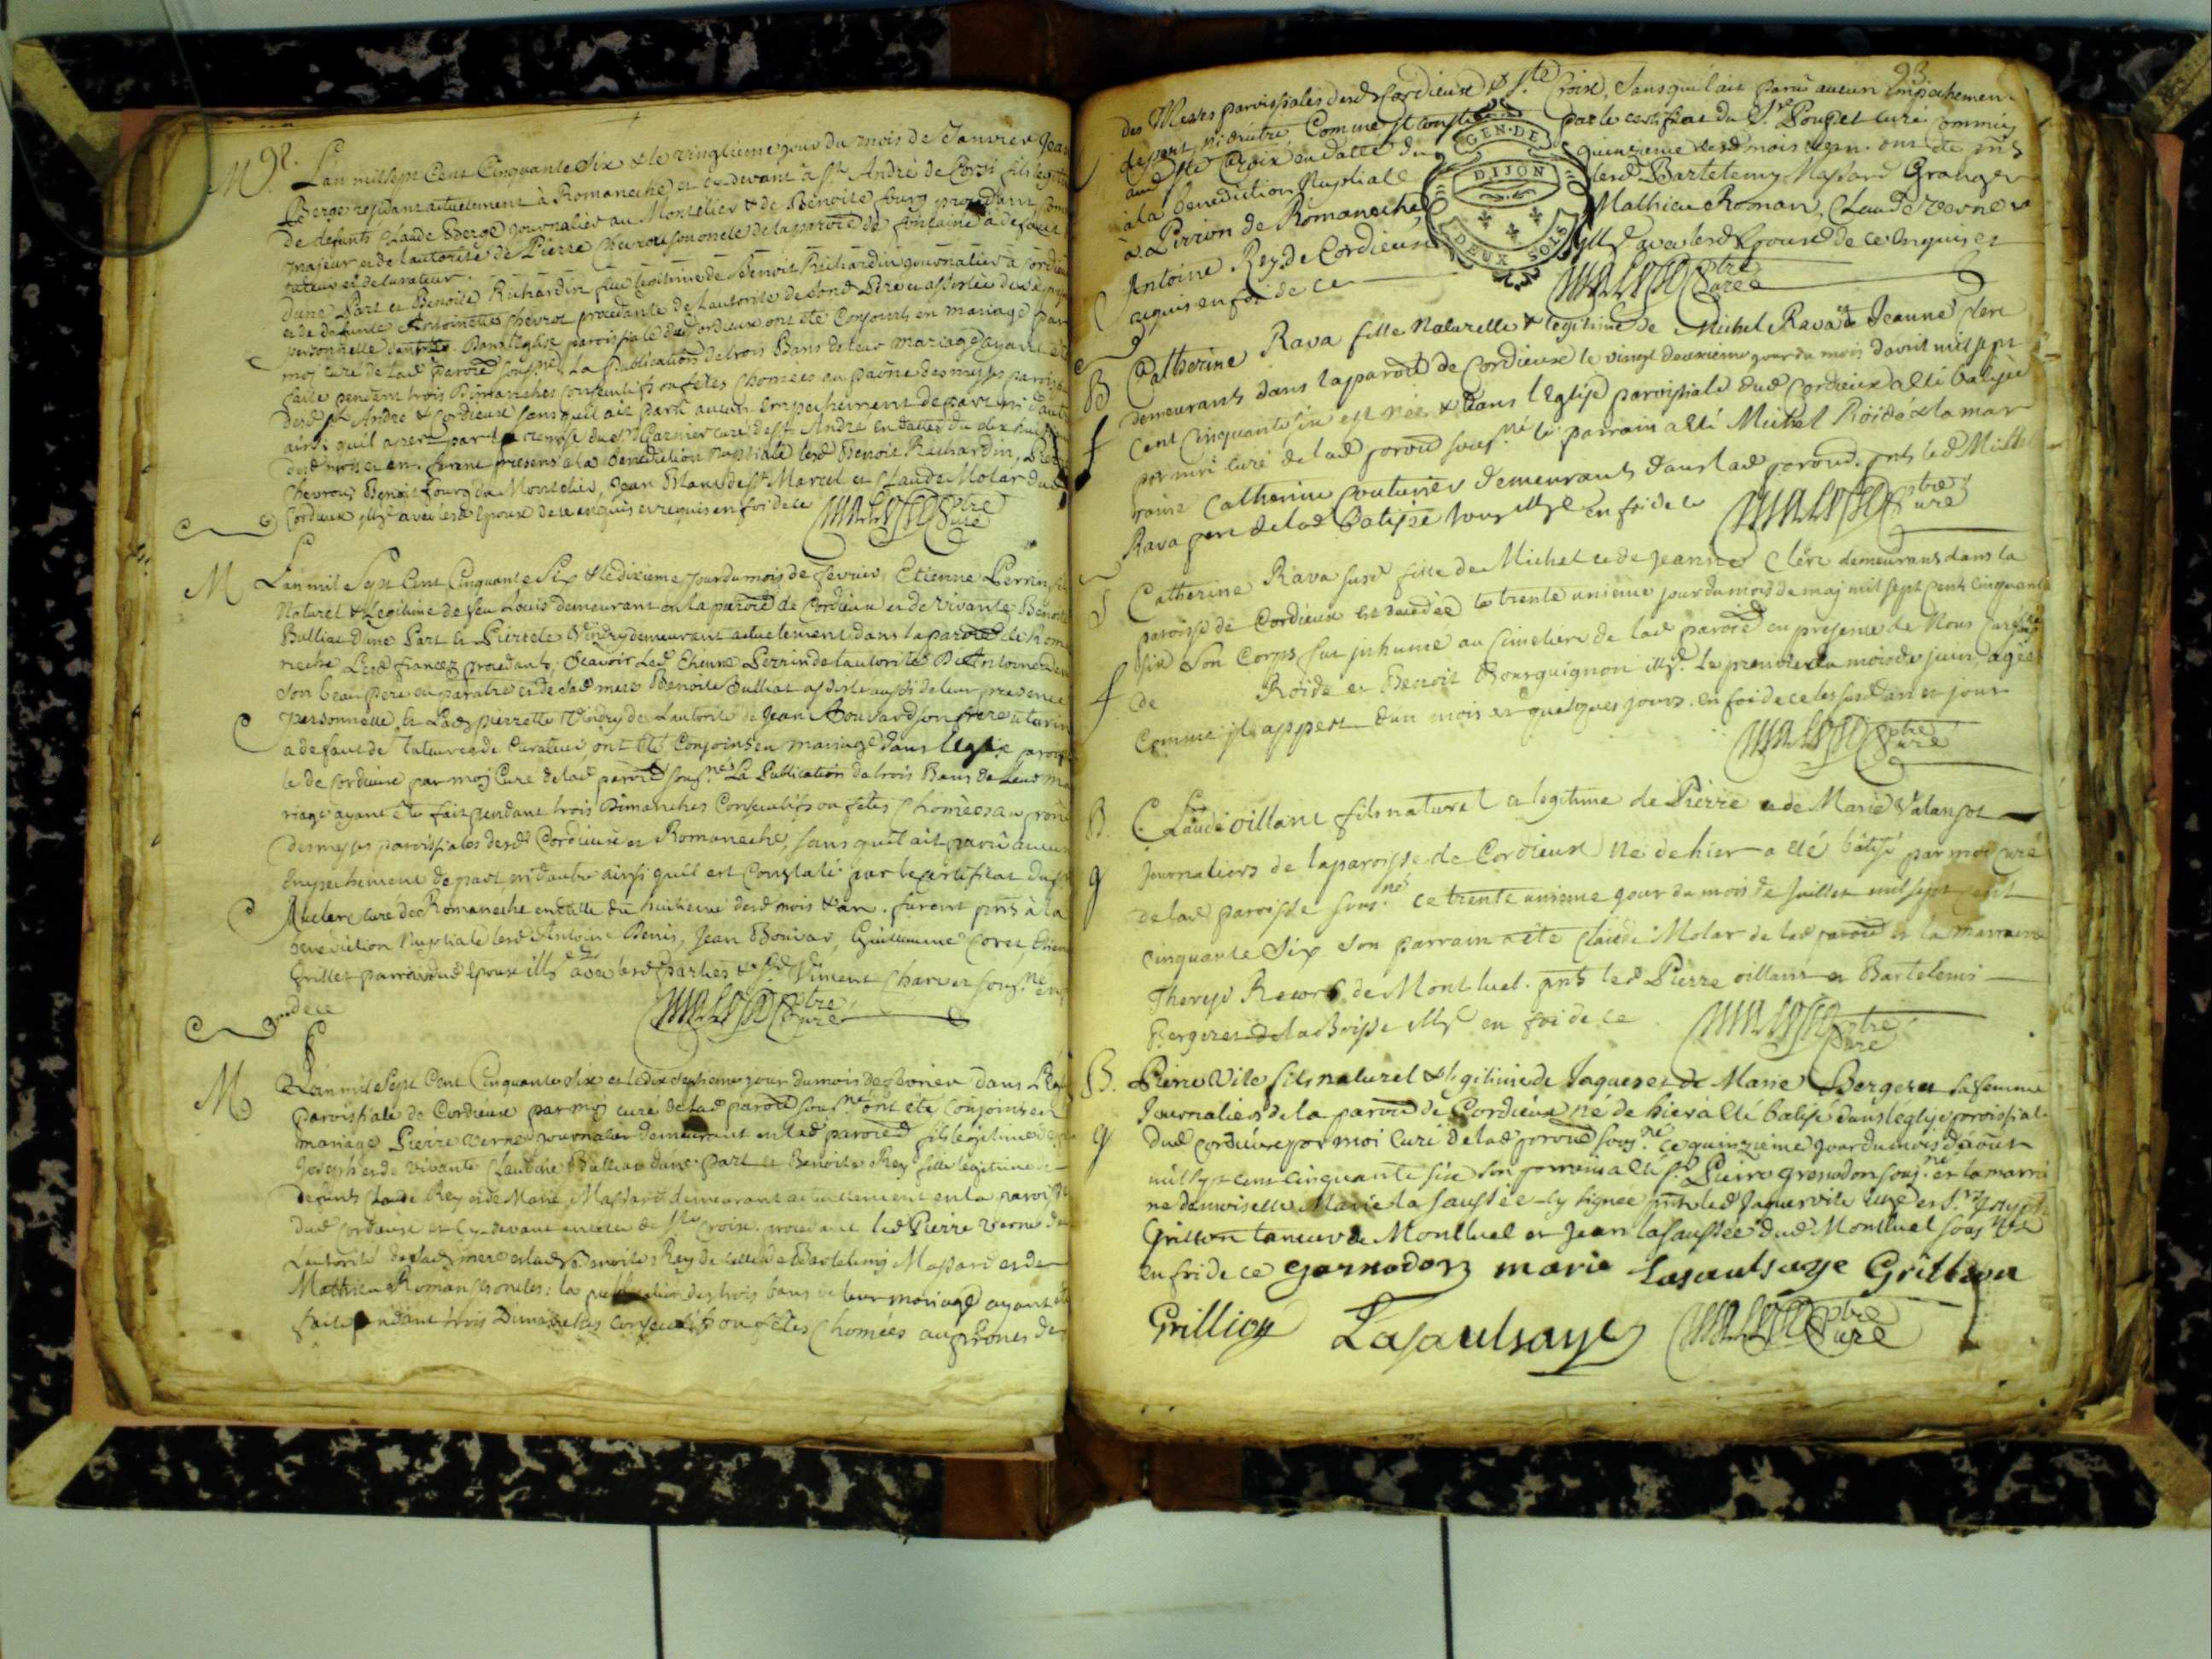 92.
M L'an mil sept Cent Cinquante Six & le vingtieme jour du mois de Janvier Jean
Berge residant actuellement à Romaneche et cy-devant à St. André de Corsi fils legit
de defunts Claude Berge journalier au Montelier & de Benoite fourg procedant
majeur et de l'autorité de Pierre Chevrou son oncle de la paroise de fontaine à defaut
tuteur et de curateur.
d'une Part et Benoite Richardin fille legitime de Benoit Richardin journalier à Cordieux
et de defunte Antoinette Chevrot procedante de l'autorité de sond Pere
personnelle Dans l'eglise paroissiale dud Cordieux ont été Conjoints en mariage par
moj Curé de lad paroise sousné La Publication de trois Bans de leur mariage ayant été
faite pendant trois Dimanches consecutifs ou fêtes chomées au prône des messes paroiss
desd St André & Cordieux sans qu'il ait paru aucun empechement de part ni d'autre
ainsi qu'il apert par la remise du Sr Garnier curé de St André en datte du dix huit
dud mois et an. furent presens à la Benediction nuptiale lesd Benoit Richardin,
Chevrou, Benoit fourg du Montelier, Jean Blanc de St Marcel et Claude Molar dud
Cordieux illé avec lesd Epoux de ce enquis et requis en foi de ce ptre Curé
M L'an mil Sept Cent Cinquante Six & le dixieme jour du mois de fevrier, Etienne Perrin fils
Naturel & Legitime de feu Louis demeurant en la paroise de Cordieux et de vivante Benoite
Bulliat d'une Part et Pierrete Vindry demeurant actuellement dans la paroise de Roma
neche Lesd fiancez procedants, Scavoir Led. Etienne Perrin de l'autorité d'Antoine Denis
son beau pere ou paratre et de sad mere Benoite Bulliat assisté aussi de leur presence
personnelle et Lad pierrette Vindry de L'autorité de Jean Bouvard son frere uterin
a defaut de Tuteur et de Curateur ont été Conjoins en mariage dans l'eglise paroiss
le de Cordieux par moj Curé de lad paroise sousné. La Publication de trois Bans de Leur ma
riage ayant été fait pendant trois Dimanches Consecutifs ou fetes chomées au prône
des messes paroissiales desd Cordieux et Romaneche, sans qu'il ait paru aucun
Empechement de part ni d'autre ainsi qu'il est Constaté par le certificat du Sr
Auclerc curé de Romaneche en datte du huitieme desd mois & an. furent prns à la
benediction Nuptiale lesd Antoine Denis, Jean Bouvar, Guillaume Coret, Etienne
Grillet parrain dud Epoux illé avec lesd Parties & Sr Vincent Charvet sousné en
foi de ce ptre Curé
M L'an mil Sept Cent Cinquante Six et le dix septieme jour du mois de fevrier dans l'Eglise
Paroissiale de Cordieux par moj curé de lad paroise sousné ont été conjoins en
mariage Pierre Verne journalier demeurant en lad paroise fils legitime de
Joseph et de vivante Claudine Bulliat d'une part et Benoite Rey fille legitime de
defunts Claude Rey et de Marie Massard demeurant actuellement en la paroisse
dud Cordieux et cy-devant en celle de Ste Croix. procedant led Pierre Verne de
L'autorité de sad mere et lad Benoite Rey de celle de Bartelemy Massard et de
Mathieu Roman ses oncles: la publication des trois bans de leur mariage ayant été
fait pendant trois Dimanches consecutifs ou fêtes Chomées aux prônes des
93.
des Messes paroissiales desd Cordieux & Ste Croix, Sans qu'il ait paru aucun Empechement
de part ni d'autre Comme Il conste par le certificat du Sr Poupet curé commis
aud Ste Croix en datte du quinzieme desd mois & an. ont été prns
à la benediction Nuptiale lesd Bartelemy Massard Granger
à Pirrion de Romaneche, Mathieu Roman, Claude Verne
Antoine Rey de Cordieux illé avec lesd Epoux de ce Enquis et
requis en foi de ce ptre Curé
GEN. DE
DIJON
DEUX SOLS
B Catherine Rava fille Naturelle & legitime de Michel Rava et de Jeanne Clerc
demeurants dans la paroise de Cordieux le vingt deuxieme jour du mois d'avril mil sept
f Cent Cinquante six est née & dans l'Eglise paroissiale dud Cordieux a été batisée
par moi curé de lad paroise sousné le parrain a été Michel Roide & la mar
raine Catherine Couturier demeurants dans lad paroise. prns led Michel
Rava pere de lad Batisée tous illé en foi de ce ptre Curé
S Catherine Rava susd fille de Michel et de Jeanne Clerc demeurans dans la
paroisse de Cordieux est decedée le trente unieme jour du mois de maj mil sept cent cinquante
six son Corps fut inhumé au Cimetiere de lad paroise en presence de Nous Curé sousné
f de Roide et Benoit Bourguignon illé. Le premier du mois de juin, agée
Comme il appert d'un mois et quelques jours. en foi de ce les susd an et jour
ptre Curé
B. Claude oillant fils naturel et legitime de Pierre et de Marie Valansot
g Journaliers de la paroisse de Cordieux né de hier a été bâtisé par moi Curé
de lad paroisse sousné ce trente unieme jour du mois de Juillet mil sept cent
cinquante Six son parrain a été Claude Molar de lad paroise et la marraine
Therese de Montluel. prns led Pierre oillant et Bartelemi
Bergeret de la Boisse illé en foi de ce ptre Curé
B. Pierre Vite fils naturel & legitime de Jaques et de Marie Bergeret sa femme
Journaliers de la paroise de Cordieux né de hier a été batisé dans l'églize paroissiale
g dud Cordieux par moi Curé de lad paroise sousné ce quinzieme jour du mois d'aout
mil sept cent cinquante six son parrain a été Sr Pierre Granodon sousné et la marrai
ne damoiselle Marie la Saussée cy signée prns led Jaques vite illé et Sr Joseph
Grillion taneur de Montluel et Jean lasaussée dud Montluel sousné
en foi de ce garnodon marie Lasaulsaye Grillion
Grillion Lasaulsaye ptre Curé